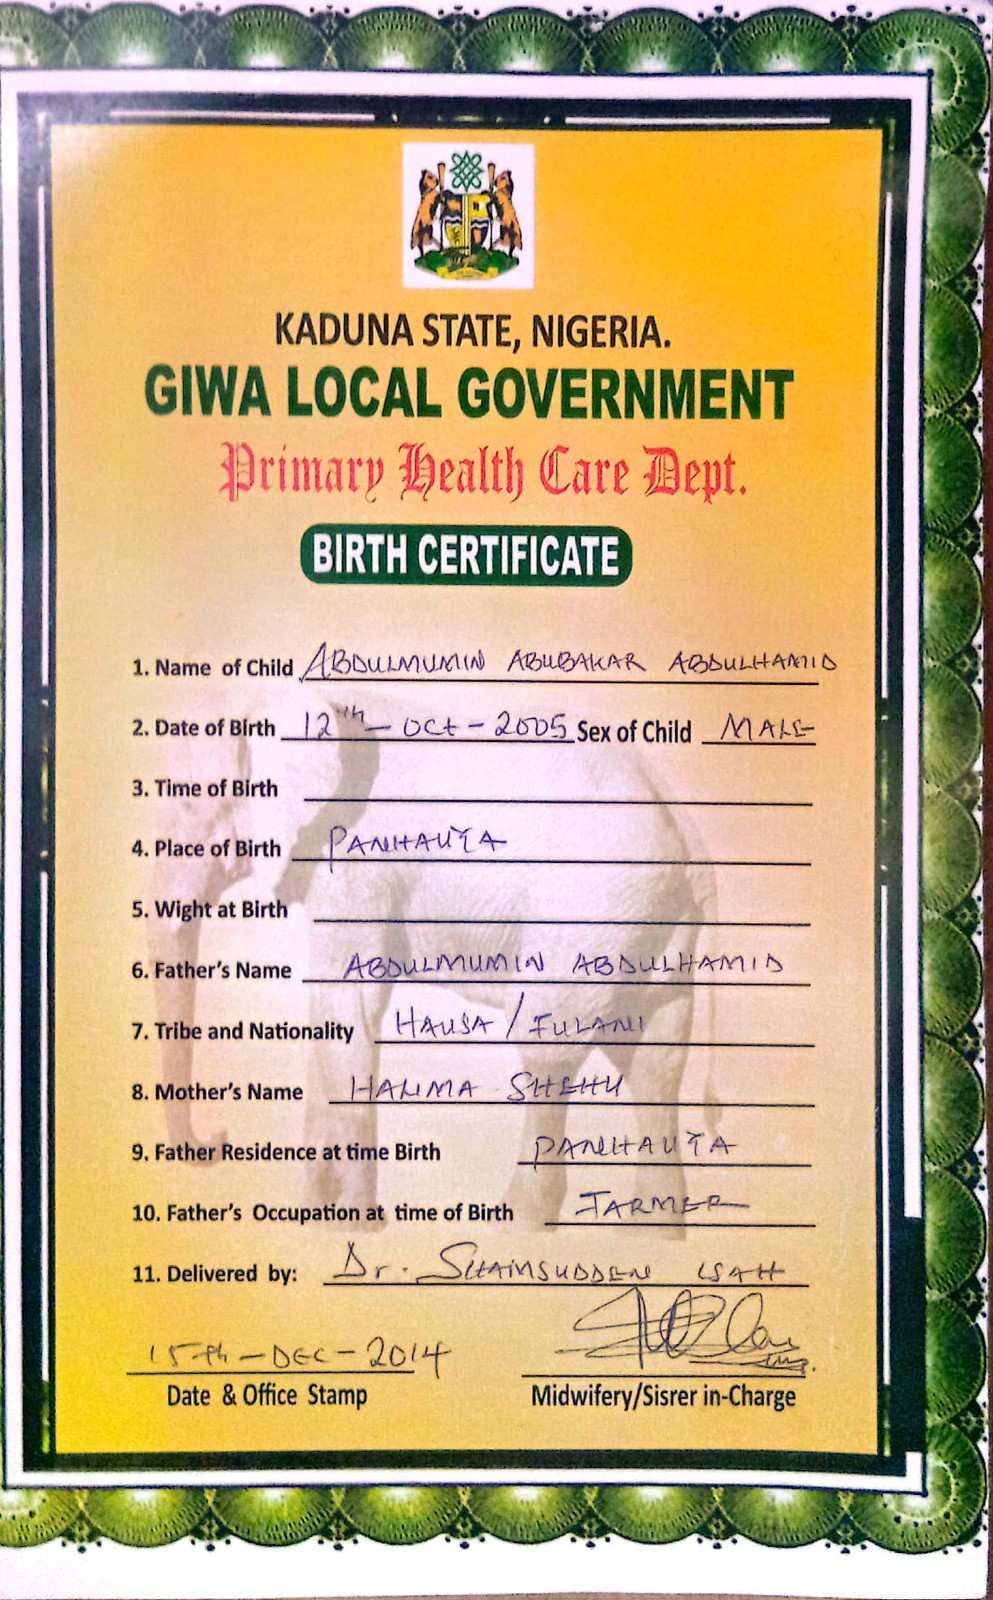 KADUNA STATE, NIGERIA.
GIWA LOCAL GOVERNMENT
Primary Health Care Dept.
BIRTH CERTIFICATE
1. Name of Child ABDULMUMIN ABUBAKAR ABDULHAMID
2. Date of Birth 12th - Oct - 2005 Sex of Child MALE
3. Time of Birth
4. Place of Birth PANHAUYA
5. Wight at Birth
6. Father's Name ABDULMUMIN ABDULHAMID
7. Tribe and Nationality HAUSA / FULANI
8. Mother's Name HALIMA SHEHU
9. Father Residence at time Birth PANHAUYA
10. Father's Occupation at time of Birth FARMER
11. Delivered by: Dr. SHAMSUDDEN ISAH
15th - DEC - 2014
Date & Office Stamp Midwifery/Sisrer in-Charge